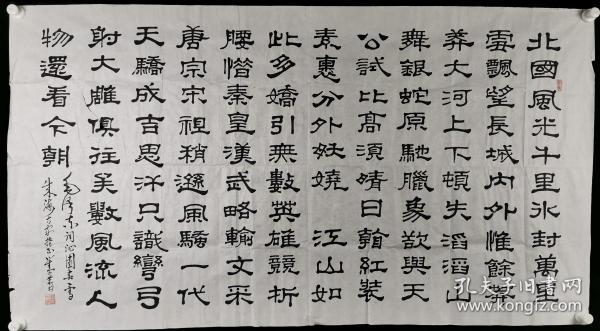 北國風光千里冰封萬里
雪飄望長城內外惟餘莽
莽大河上下頓失滔滔山
舞銀蛇原馳臘象欲與天
公試比高須晴日看紅裝
素裹分外妖嬈 江山如
此多嬌引無數英雄競折
腰惜秦皇漢武略輸文采
唐宗宋祖稍遜風騷一代
天驕成吉思汗只識彎弓
射大雕俱往矣數風流人
物還看今朝
毛澤東詞沁園春雪
孔夫子旧书网